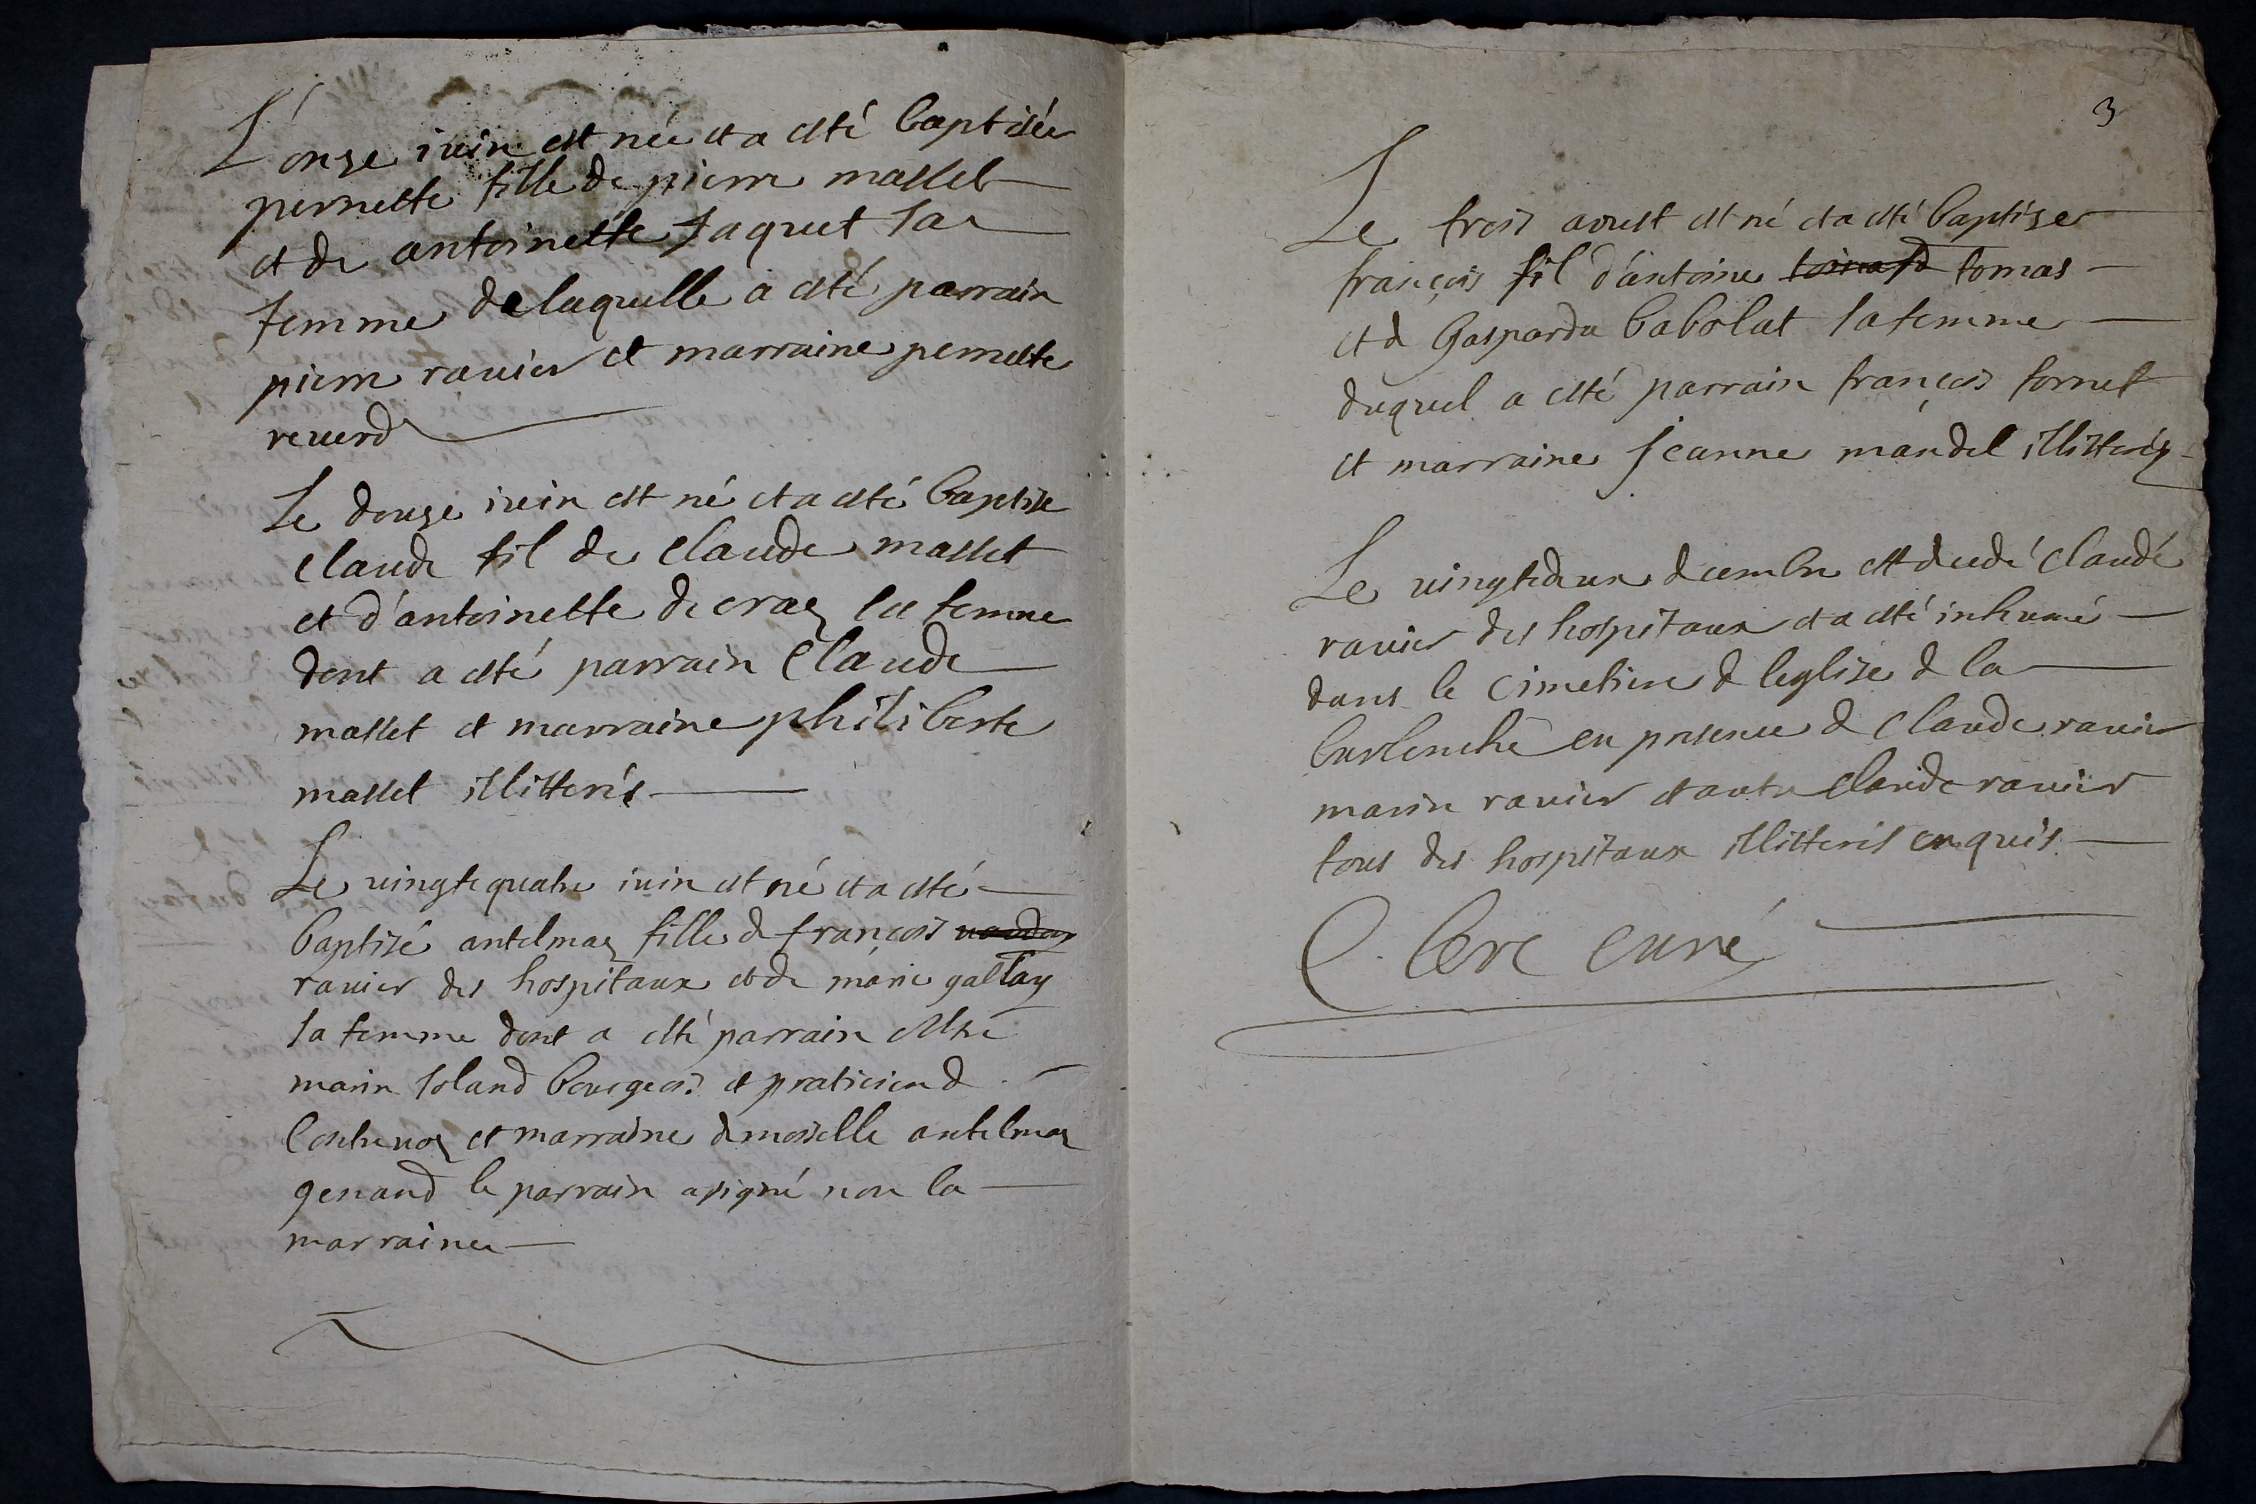 L'onze iuin est née et a esté baptisée
pernette fille de pierre masset
et de antoinette Jaquet sa
femme de laquelle a esté parrain
pierre rauier et marraine pernette
reuerd
Le douze iuin est né et a esté baptisé
claude fil de claude masset
et d'antoinette de craz sa femme
dont a esté parrain claude
masset et marraine philiberte
masset illitterés
Le vingtequatre iuin est né et a esté
baptisé antelmaz fille de françois
rauier des hospitaux et de marie gallay
sa femme dont a esté parrain
marin soland bourgeois et praticien d
et marraine demoiselle antelmaz
genand le parrain a signé non la
marraine
3
Le trois aoust est né et a esté baptise
françois fil d'antoine tomas
et d gasparda babolat sa femme
duquel a esté parrain françois fornet
et marraine jeanne mandel illitterés
Le vingtedeux decembre est decedé claude
rauier des hospitaux et a esté inhumé
dans le cimetiere d leglise d la
burbenche en presence d claude rauier
marin rauier et autre claude rauier
tous des hospitaux illitterés enquis
C. clerc curé